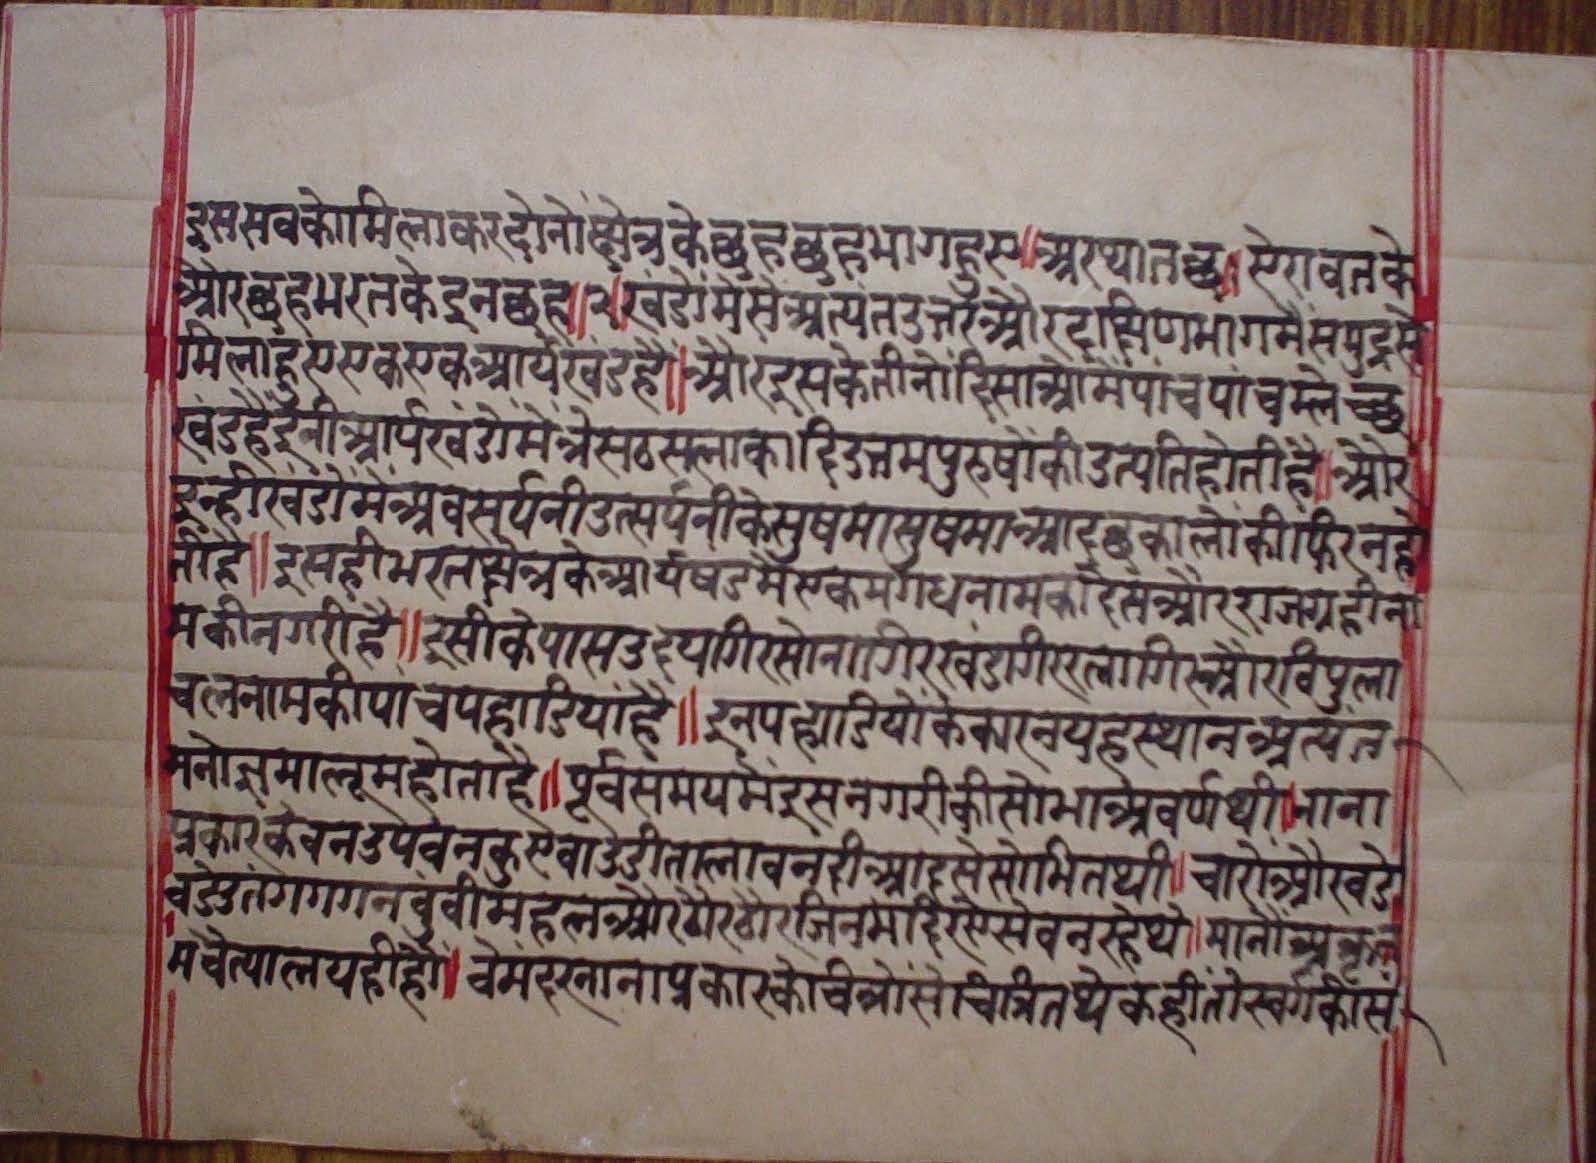 इससवकोमिलाकरदोनोंक्षेत्रकेछुहछुहभागहुए॥अरथातछ॥ऐरावतके
औरछुहभरतकेइनछुह॥२॥खंडोंमैसेंअत्यंतउत्तरऔरदाक्षिणभागमैंसमुद्रसे
मिलाहुएएकएकआर्यखंडहै॥औरइसकेतीनोंदिसाओंमैंपांचपांचम्लेच्छ
खंडहैंईंनीआर्पखंडोंमेंत्रेसठसलाकादिउत्तमपुरुषोंकीउत्पतिहोतीहैं॥और
इन्हींखंडोंमेंअवसर्पनीउत्सर्पनीकेसुषमासुषमाआदछकालोंकीफिरनहो
तीहै॥इसहीभरतक्षेत्रकेआर्यषडमैएकमगधनामकादेसऔरराजग्रहीना
मकीनगरीहै॥इसीकेपासउदयागिरसोनागिरखंडागिररत्नागिरऔरविपुला
चलनामकीपांचपहाडियांहैं॥इनपहाडियोंकेकारनयहस्थानअत्यंत
मनोज्ञमालूमहोताहै॥पूर्वसमयमैंइसनगरीकीसोभाअवर्णथी।नाना
प्रकारकेवनउपवनकुएवाउडीतालावनदीआदसेसोभितथी॥चारोंऔरवडे
वडेउतंगगगनवुंवीमहलऔरठौरठौरजिनमंदिरऐसेवनरहेथे॥मानोंअकृत्त
मचैत्यालयहीहों॥वेमंदरनानाप्रकारकोचित्रोंसेचित्रितथेकहींतोस्वर्गकीसं